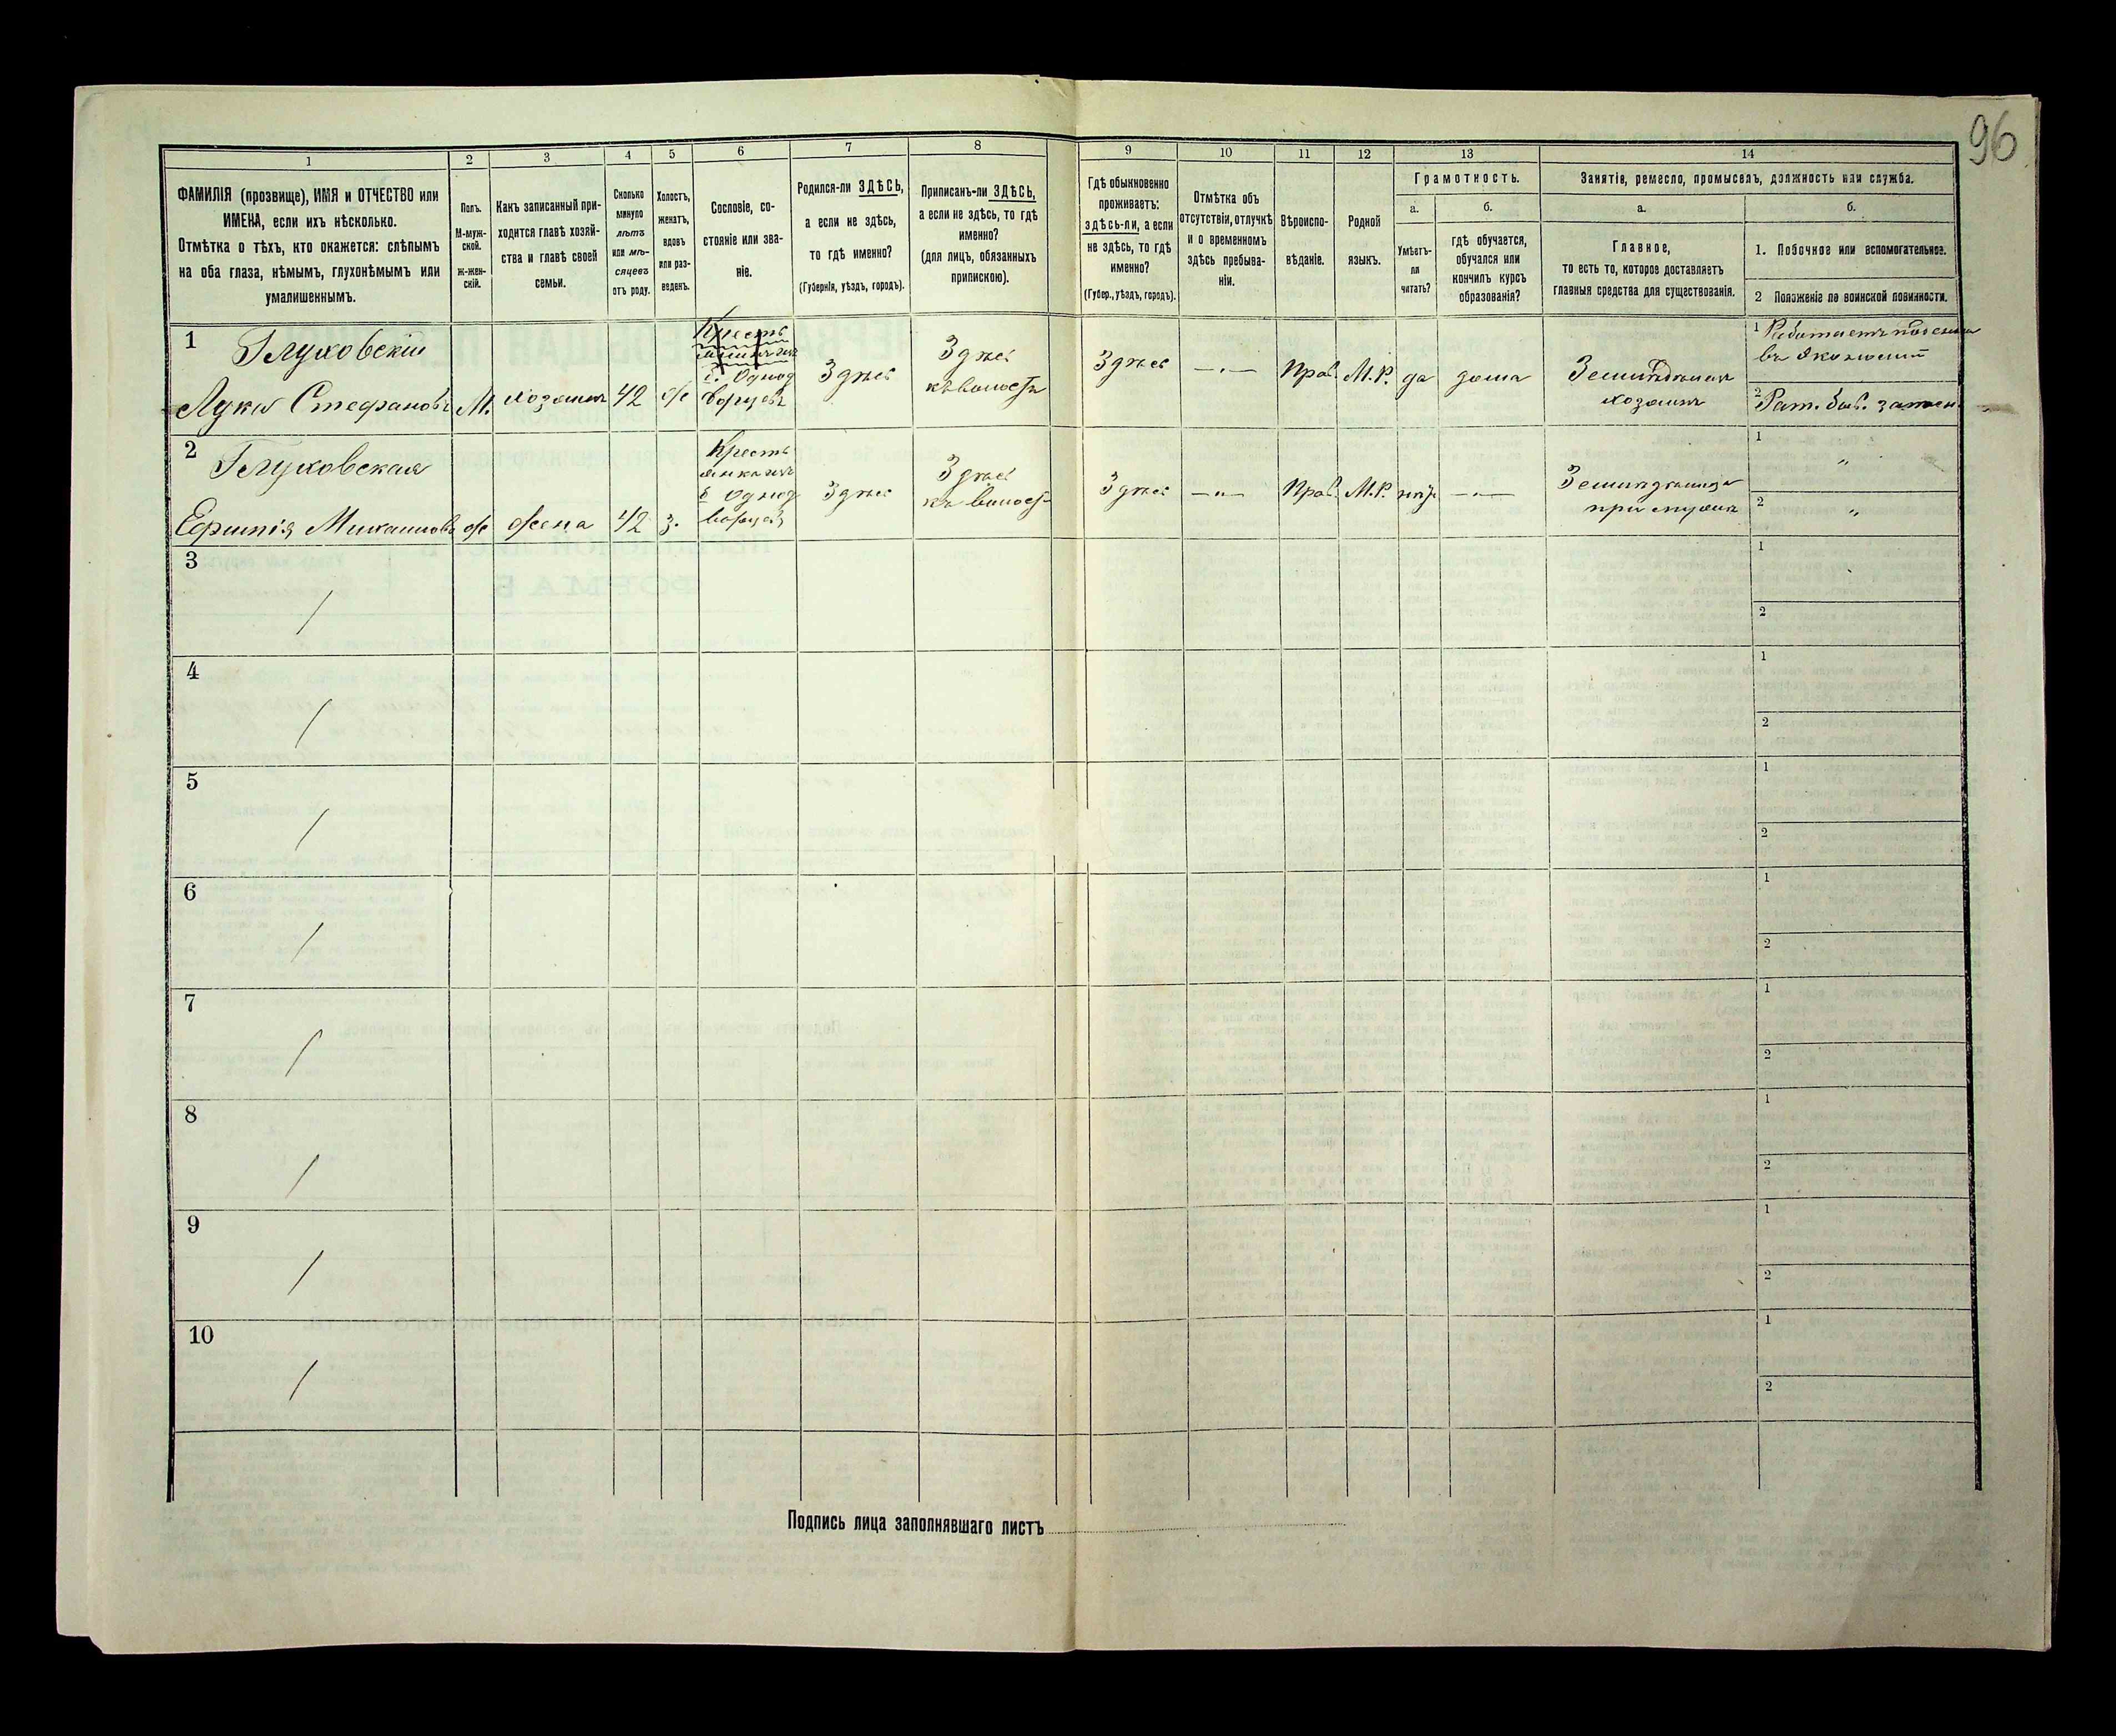 96
1
2
3
4
5
6
7
8
9
10
11
12
13
14
ФАМИЛІЯ (прозвище), ИМЯ и ОТЧЕСТВО или
ИМЕНА, если ихъ нѣсколько.
Отмѣтка о тѣхъ, кто окажется: слѣпымъ
на оба глаза, нѣмымъ, глухонѣмымъ или
умалишеннымъ.
Полъ.
М-муж-
ской.
ж-жен-
скій.
Какъ записанный при-
ходится главѣ хозяй-
ства и главѣ своей
семьи.
Сколько
минуло
лѣтъ
или мѣ-
сяцевъ
отъ роду.
Холостъ,
женатъ,
вдовъ
или раз-
веденъ.
Сословіе, со-
стояніе или зва-
ніе.
Родился-ли ЗДѢСЬ,
а если не здѣсь,
то гдѣ именно?
(Губернія, уѣздъ, городъ).
Приписанъ-ли ЗДѢСЬ,
а если не здѣсь, то гдѣ
именно?
(для лицъ, обязанныхъ
припискою).
Гдѣ обыкновенно
проживаетъ:
здѣсь-ли, а если
не здѣсь, то гдѣ
именно?
(Губер., уѣздъ, городъ).
Отмѣтка объ
отсутствіи, отлучкѣ
и о временномъ
здѣсь пребыва-
ніи.
Вѣроиспо-
вѣданіе.
Родной
языкъ.
Грамотность.
а.
б.
Умѣетъ-
ли
читать?
гдѣ обучается,
обучался или
кончилъ курсъ
образованія?
Занятіе, ремесло, промыселъ, должность или служба.
а.
б.
Главное,
то есть то, которое доставляетъ
главныя средства для существованія.
1. Побочное или вспомогательное.
2 Положеніе по воинской повинности.
1
Глуховскій
Лука Стефановъ
М.
хозяинъ
42
ж
Кресть
I. Однод
ворцевъ
Здѣсь
Здѣсь
къ волости
Здѣсь
—„—
Прав.
М.Р.
да
дома
Земледѣлецъ
хозяинъ
1
Работаетъ
въ экономіи
2
Рат.
2
Глуховская
Ефимія Михаилова
ж
жена
42
з.
Кресть
янка изъ
Однод
ворцевъ
Здѣсь
Здѣсь
къ волост
Здѣсь
—„—
Прав.
М.Р.
нѣт
—„—
при мужѣ
1
„
2
„
3
/
1
2
4
/
1
2
5
/
1
2
6
/
1
2
7
/
1
2
8
/
1
2
9
/
1
2
10
/
1
2
Подпись лица заполнявшаго листъ